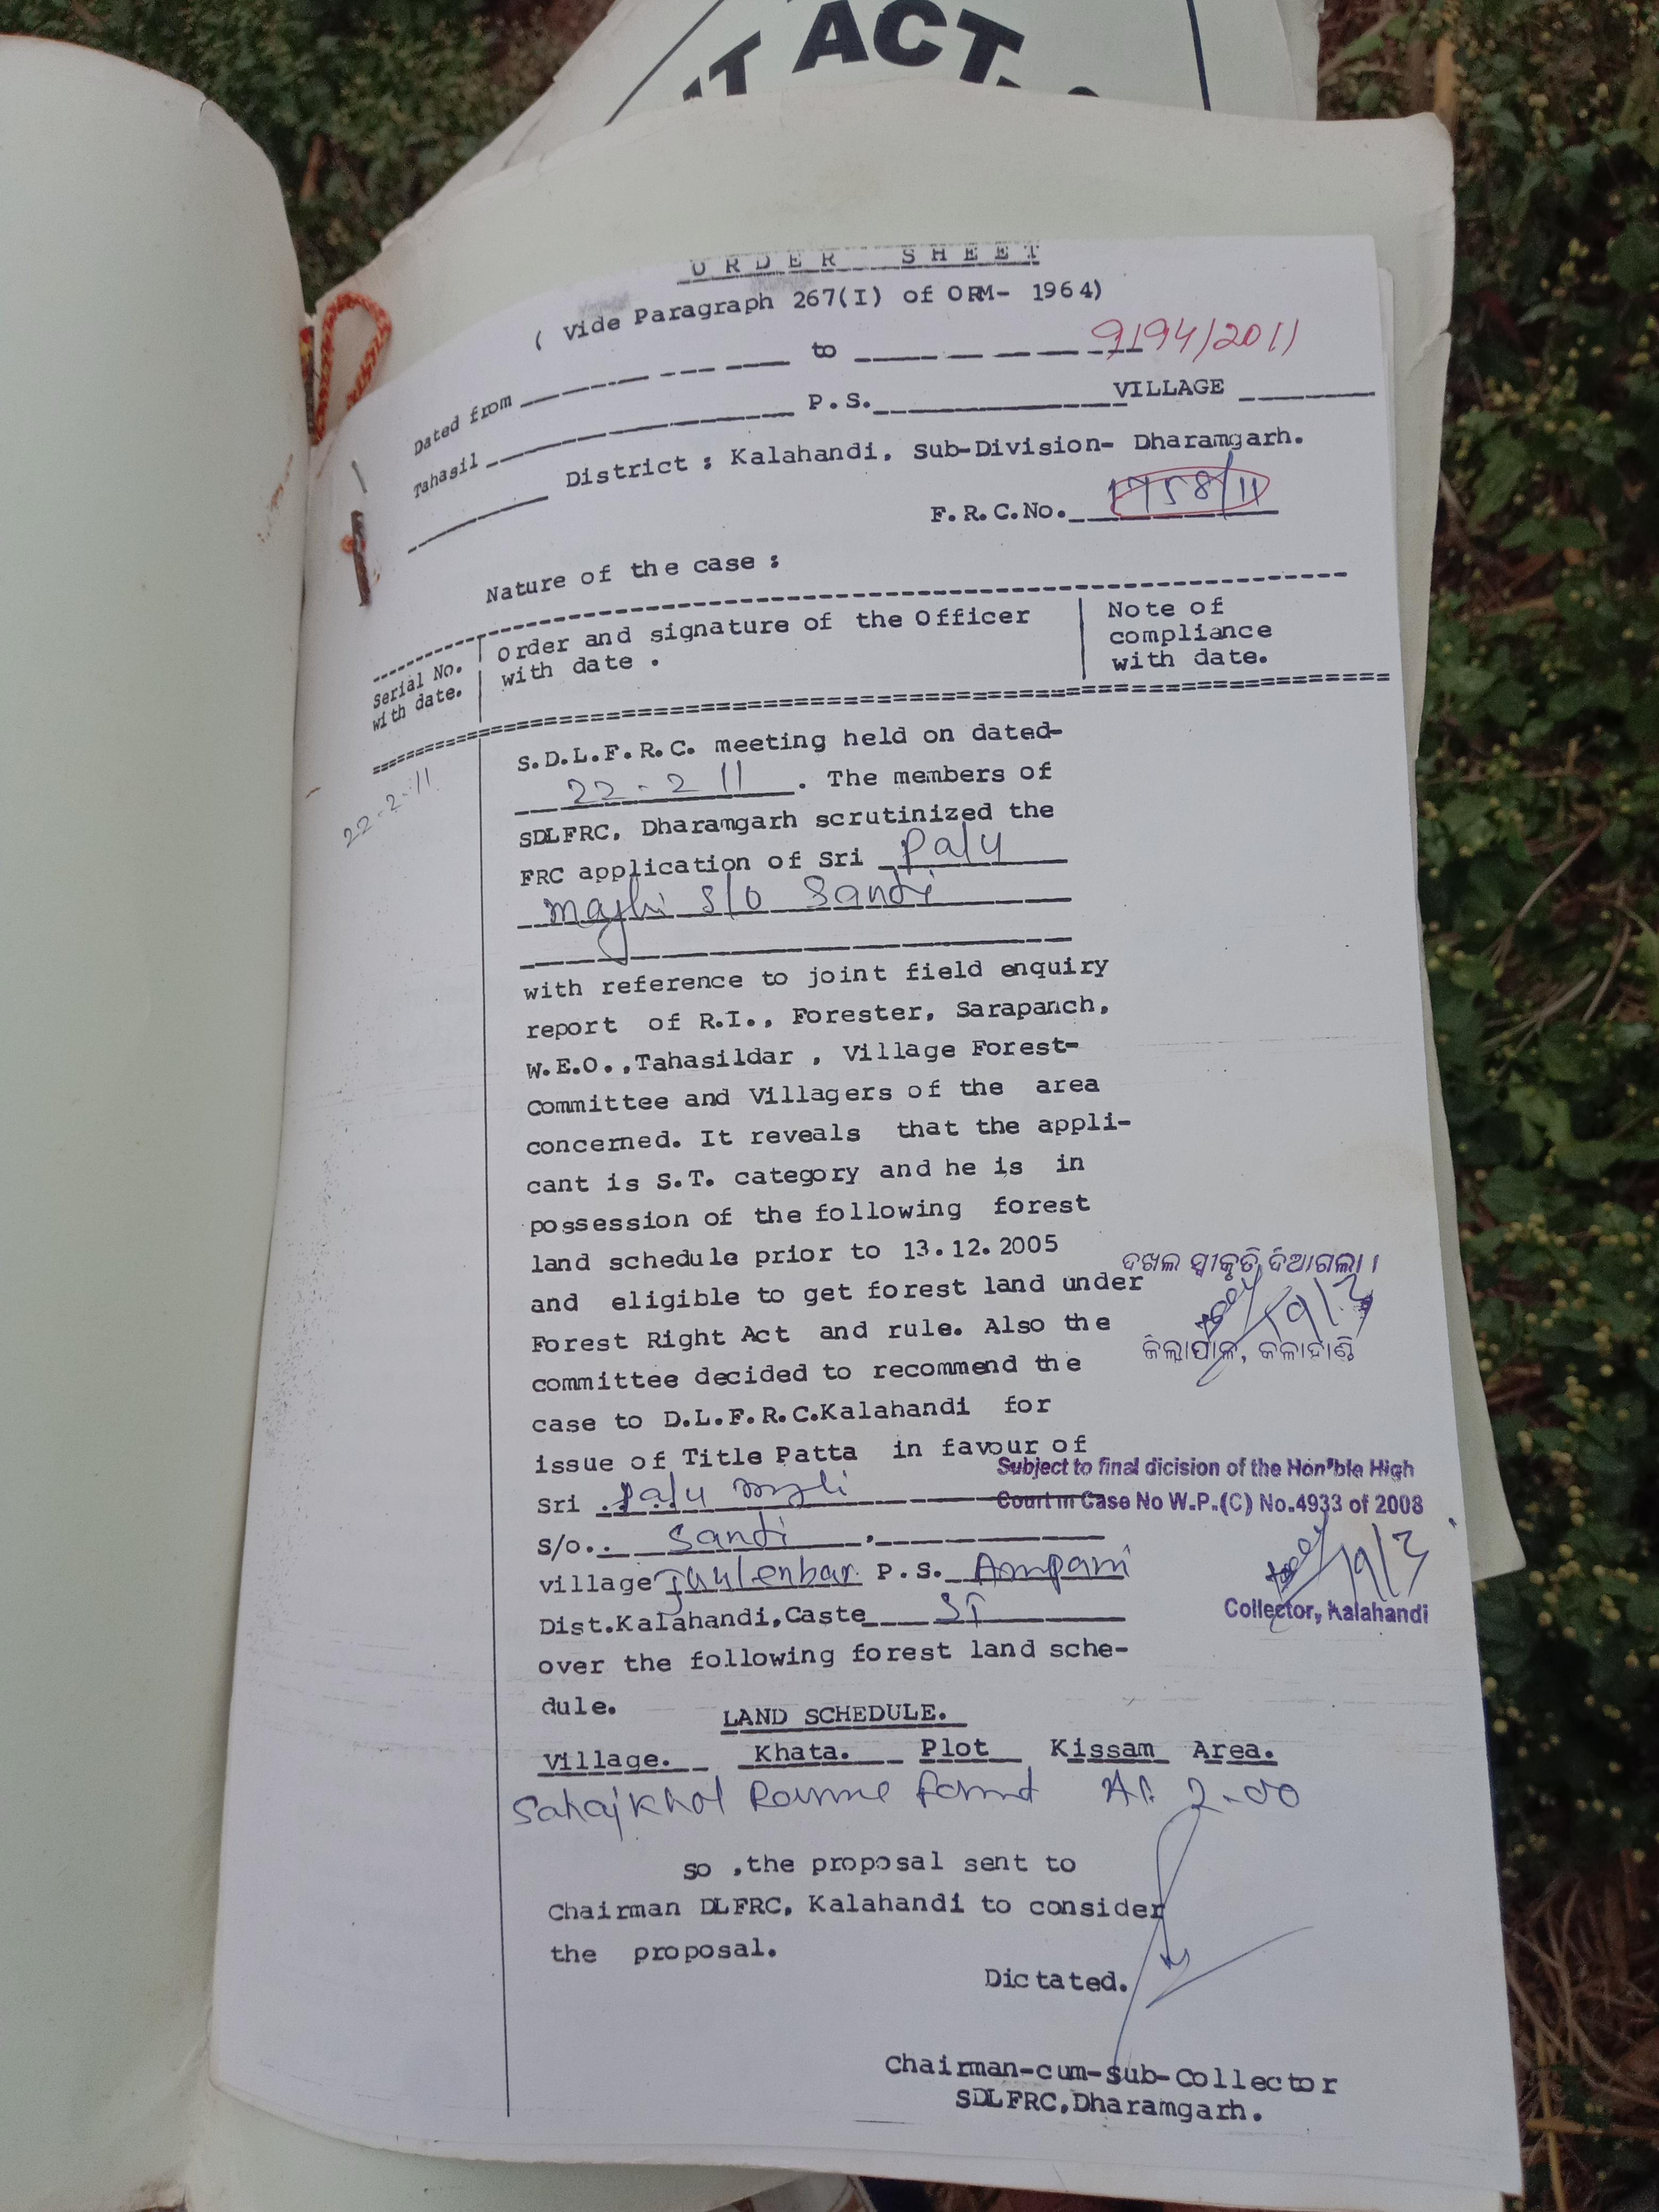 ACT
ORDER SHEET
( Vide Paragraph 267(I) of ORM- 1964)
9194/2011
Dated from to
Tahasil P.S. VILLAGE
District : Kalahandi, Sub-Division- Dharamgarh.
F.R.C.No. 1758/11
Nature of the case :
Serial No. with date.
Order and signature of the Officer with date .
Note of compliance with date.
22-2-11
S.D.L.F.R.C. meeting held on dated-
22-2 11 . The members of
SDLFRC, Dharamgarh scrutinized the
FRC application of Sri Palu
Majhi S/o Sandi
with reference to joint field enquiry
report of R.I., Forester, Sarapanch,
W.E.O.,Tahasildar , Village Forest-
Committee and Villagers of the area
concerned. It reveals that the appli-
cant is S.T. category and he is in
possession of the following forest
land schedule prior to 13.12.2005
and eligible to get forest land under
Forest Right Act and rule. Also the
committee decided to recommend the
case to D.L.F.R.C.Kalahandi for
issue of Title Patta in favour of
Sri Palu
S/o.. Sandi
village P.S. Ampani
Dist.Kalahandi,Caste ST
over the following forest land sche-
dule.
ଦଖଲ ସ୍ୱୀକୃତି ଦିଆଗଲା ।
ଜିଲ୍ଲାପାଳ, କଳାହାଣ୍ଡି
Subject to final dicision of the Hon'ble High
Court in Case No W.P.(C) No.4933 of 2008
19/3
Collector, Kalahandi
LAND SCHEDULE.
Village. Khata. Plot Kissam Area.
Sahajkhol 2.00
so ,the proposal sent to
Chairman DLFRC, Kalahandi to consider
the proposal.
Dictated.
Chairman-cum-Sub-Collector
SDLFRC,Dharamgarh.